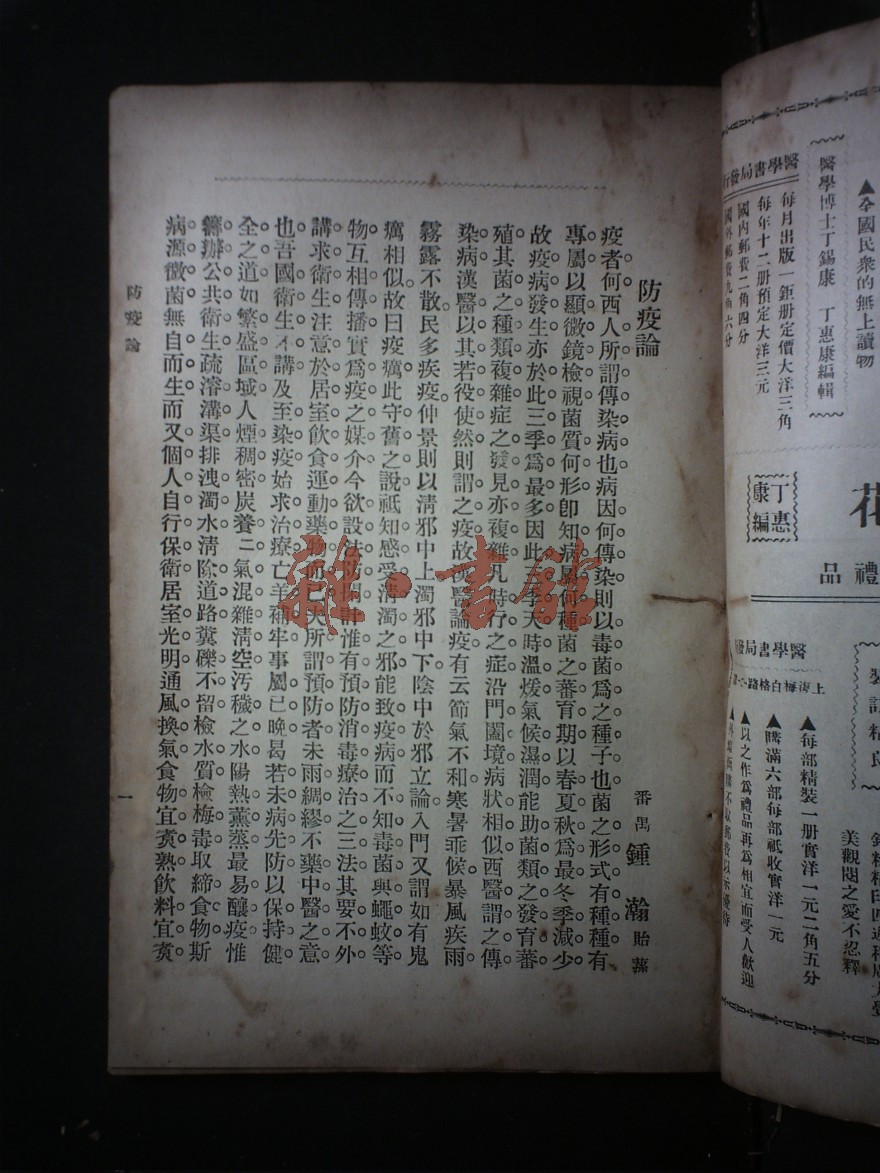 防疫論
番禺 鍾瀚 貽蓀
疫者何西人所謂傳染病也病因何傳染則以毒菌爲之種子也菌之形式有種種有
專屬以顯微鏡檢視菌質何形卽知病屬何種菌之蕃育期以春夏秋爲最冬季減少
故疫病發生亦於此三季爲最多因此三季天時溫煖氣候濕潤能助菌類之發育蕃
殖其菌之種類複雜症之發見亦複雜凡時行之症沿門闔境病狀相似西醫謂之傳
染病漢醫以其若役使然則謂之疫故漢醫論疫有云節氣不和寒暑乖候暴風疾雨
霧露不散民多疾疫仲景則以淸邪中上濁邪中下陰中於邪立論入門又謂如有鬼
癘相似故曰疫癘此守舊之說祇知感受淸濁之邪能致疫病而不知毒菌與蠅蚊等
物互相傳播實爲疫之媒介今欲設法防閑計惟有預防消毒療治之三法其要不外
講求衛生注意於居室飮食運動藥物而已夫所謂預防者未雨綢繆不藥中醫之意
也吾國衛生不講及至染疫始求治療亡羊補牢事屬已晚曷若未病先防以保持健
全之道如繁盛區域人煙稠密炭養二氣混雜淸空汚穢之水陽熱薰蒸最易釀疫惟
辦公共衛生疏濬溝渠排洩濁水淸除道路糞礫不留檢水質檢梅毒取締食物斯
病源微菌無自而生而又個人自行保衛居室光明通風換氣食物宜煑熟飮料宜煑
防疫論
一
雜·書館
▲全國民衆的無上讀物
醫學博士丁錫康 丁惠康編輯
每月出版一鉅册定價大洋三角
每年十二册預定大洋三元
國內郵費二角四分
國外郵費九角六分
醫學書局發行
花
丁惠康編
禮品
醫學書局發
上海梅白格路
裝訂精良
美觀閱之愛不忍釋
▲每部精裝一册實洋一元二角五分
▲購滿六部每部祇收實洋一元
▲以之作爲禮品再爲相宜而受人歡迎